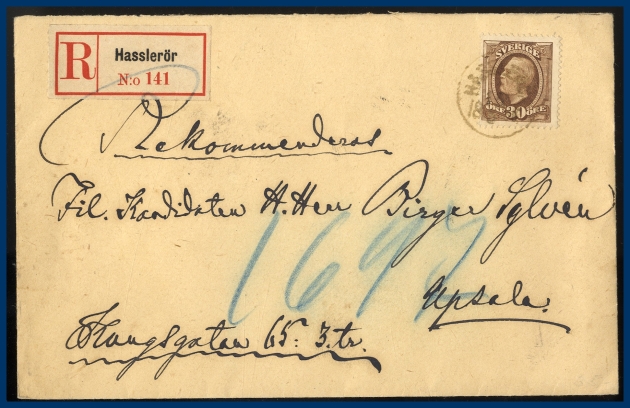 R Hasslerör
N:o 141
SVERIGE
ÖRE 30 ÖRE
Rekommenderas
Fil. Kandidaten H. Herr Birger Sylvén
1697
Upsala.
Kungsgatan 65. 3. tr.